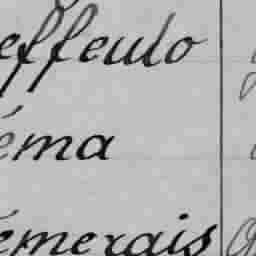 effeulo
éma
émerais